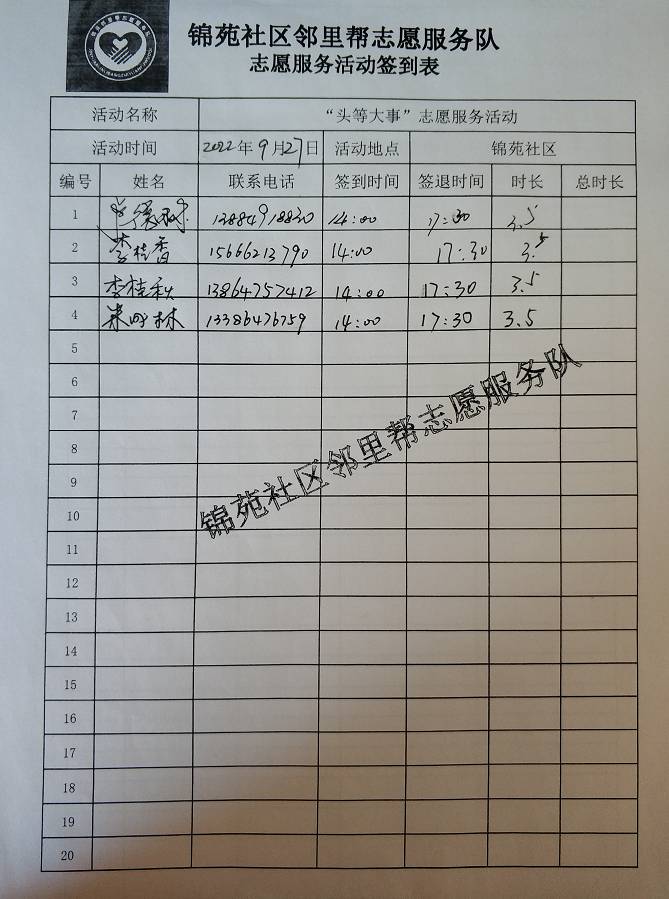 锦苑社区邻里帮志愿服务队
志愿服务活动签到表
活动名称 “头等大事”志愿服务活动
活动时间 2022年9月27日 活动地点 锦苑社区
编号 姓名 联系电话 签到时间 签退时间 时长 总时长
1 13884918830 14:00 17:30 3.5
2 李桂香 15666213790 14:00 17:30 3.5
3 李桂秋 13864757412 14:00 17:30 3.5
4 林 13386476759 14:00 17:30 3.5
5
6
7
8
9
10
11
12
13
14
15
16
17
18
19
20
锦苑社区邻里帮志愿服务队